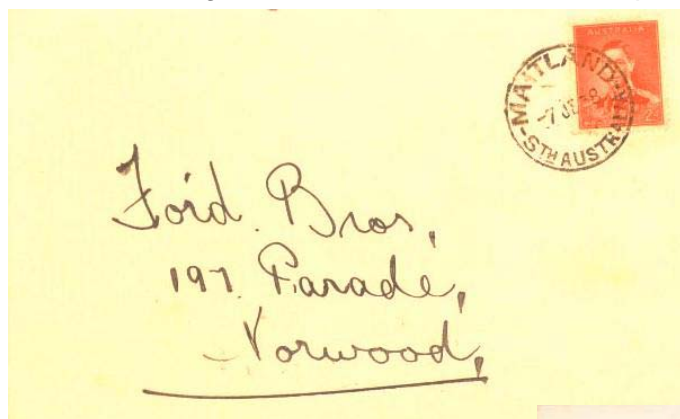 AUSTRALIA
MAITLAND
STH AUSTRALIA
Ford. Bros,
197. Parade,
Norwood,